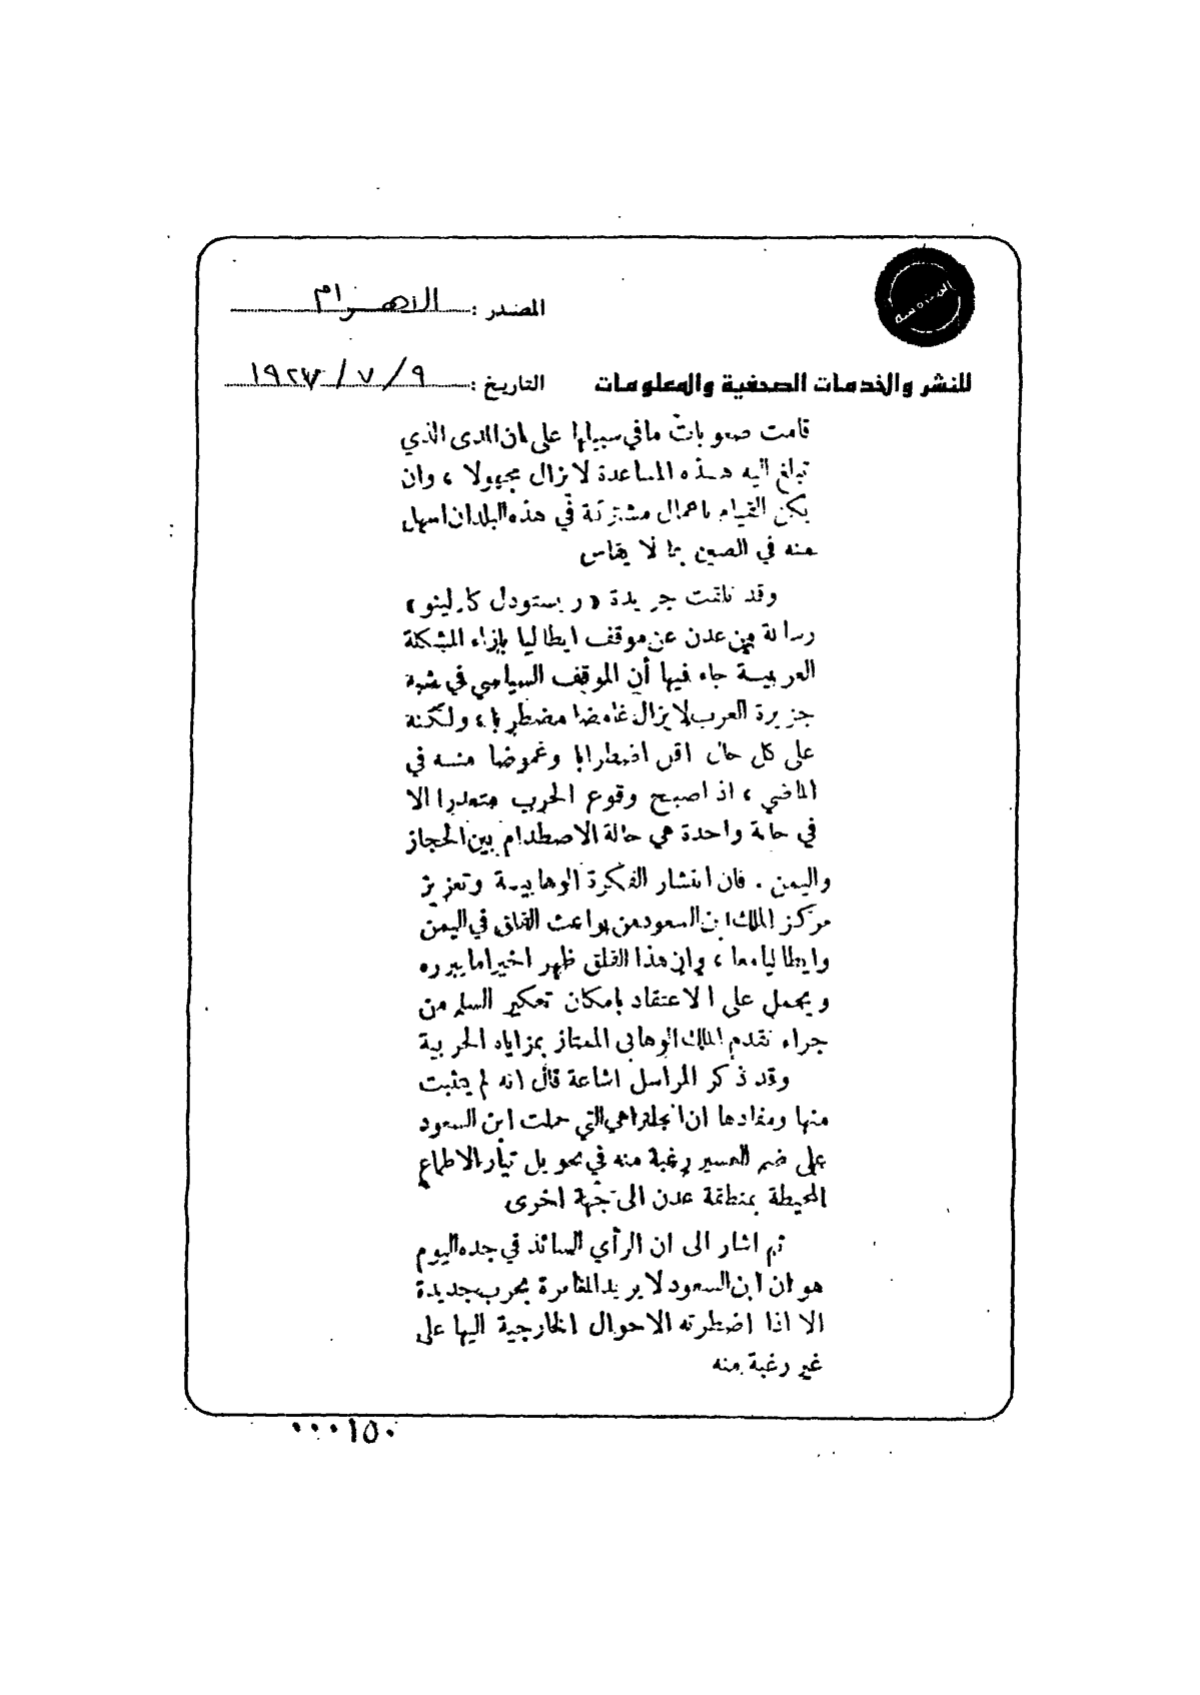 المصدر : الاهرام
للنشر والخدمات الصحفية والمعلومات
التاريخ : ٩ / ٧ / ١٩٢٧
قامت صعوبات ما في سبيلها على ان المدى الذي
تبلغ اليه هذه المساعدة لا يزال مجهولا ، وان
يكن القيام باعمال مشتركة في هذه البلدان اسهل
منه في الصين بما لا يقاس
وقد تلقت جريدة « ريستودل كارلينو »
رسالة من عدن عن موقف ايطاليا بإزاء المشكلة
العربية جاء فيها أن الموقف السياسي في شبه
جزيرة العرب لا يزال غامضا مضطربا ، ولكنه
على كل حال اقل اضطرابا وغموضا منه في
الماضي ، اذ اصبح وقوع الحرب متعذرا الا
في حالة واحدة هي حالة الاصطدام بين الحجاز
واليمن . فان انتشار الفكرة الوهابية وتعزيز
مركز الملك ابن السعود من بواعث القلق في اليمن
وايطاليا معا ، وان هذا القلق ظهر اخيرا ما يبرره
ويحمل على الاعتقاد بامكان تعكير السلم من
جراء تقدم الملك الوهابي الممتاز بمزاياه الحربية
وقد ذكر المراسل اشاعة قال انه لم يتثبت
منها ومفادها ان انجلترا هي التي حملت ابن السعود
على ضم العسير رغبة منه في تحويل تيار الاطماع
المحيطة بمنطقة عدن الى جهة اخرى
ثم اشار الى ان الرأي السائد في جده اليوم
هو ان ابن السعود لا يريد المغامرة بحرب جديدة
الا اذا اضطرته الاحوال الخارجية اليها على
غير رغبة منه
٠٠٠١٥٠